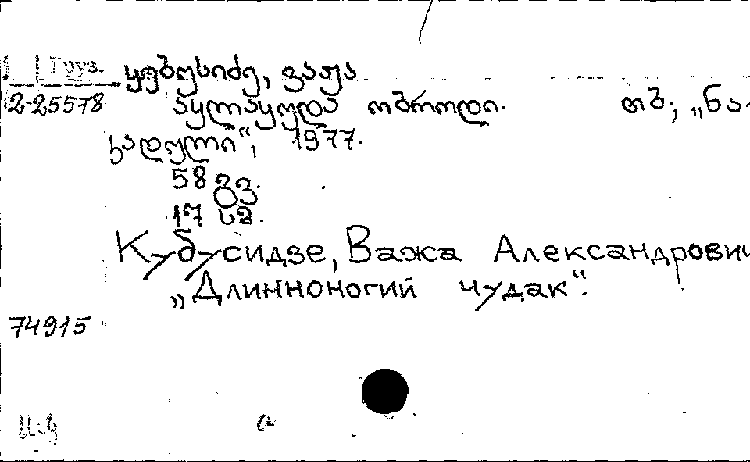 Груз. ყუბუსიძე, ვაჟა
2-25578 აყლაყუდა თბ; „ნა-
კადული“, 1977.
58 გვ.
17 სმ.
Кубусидзе, Важа Александрович
„Длинноногий чудак“.
74915